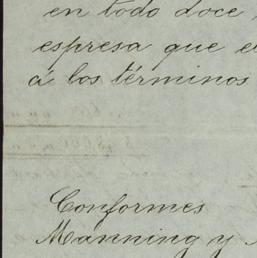 en todo doce
espresa que e
á los términos
Conformes
Manning y